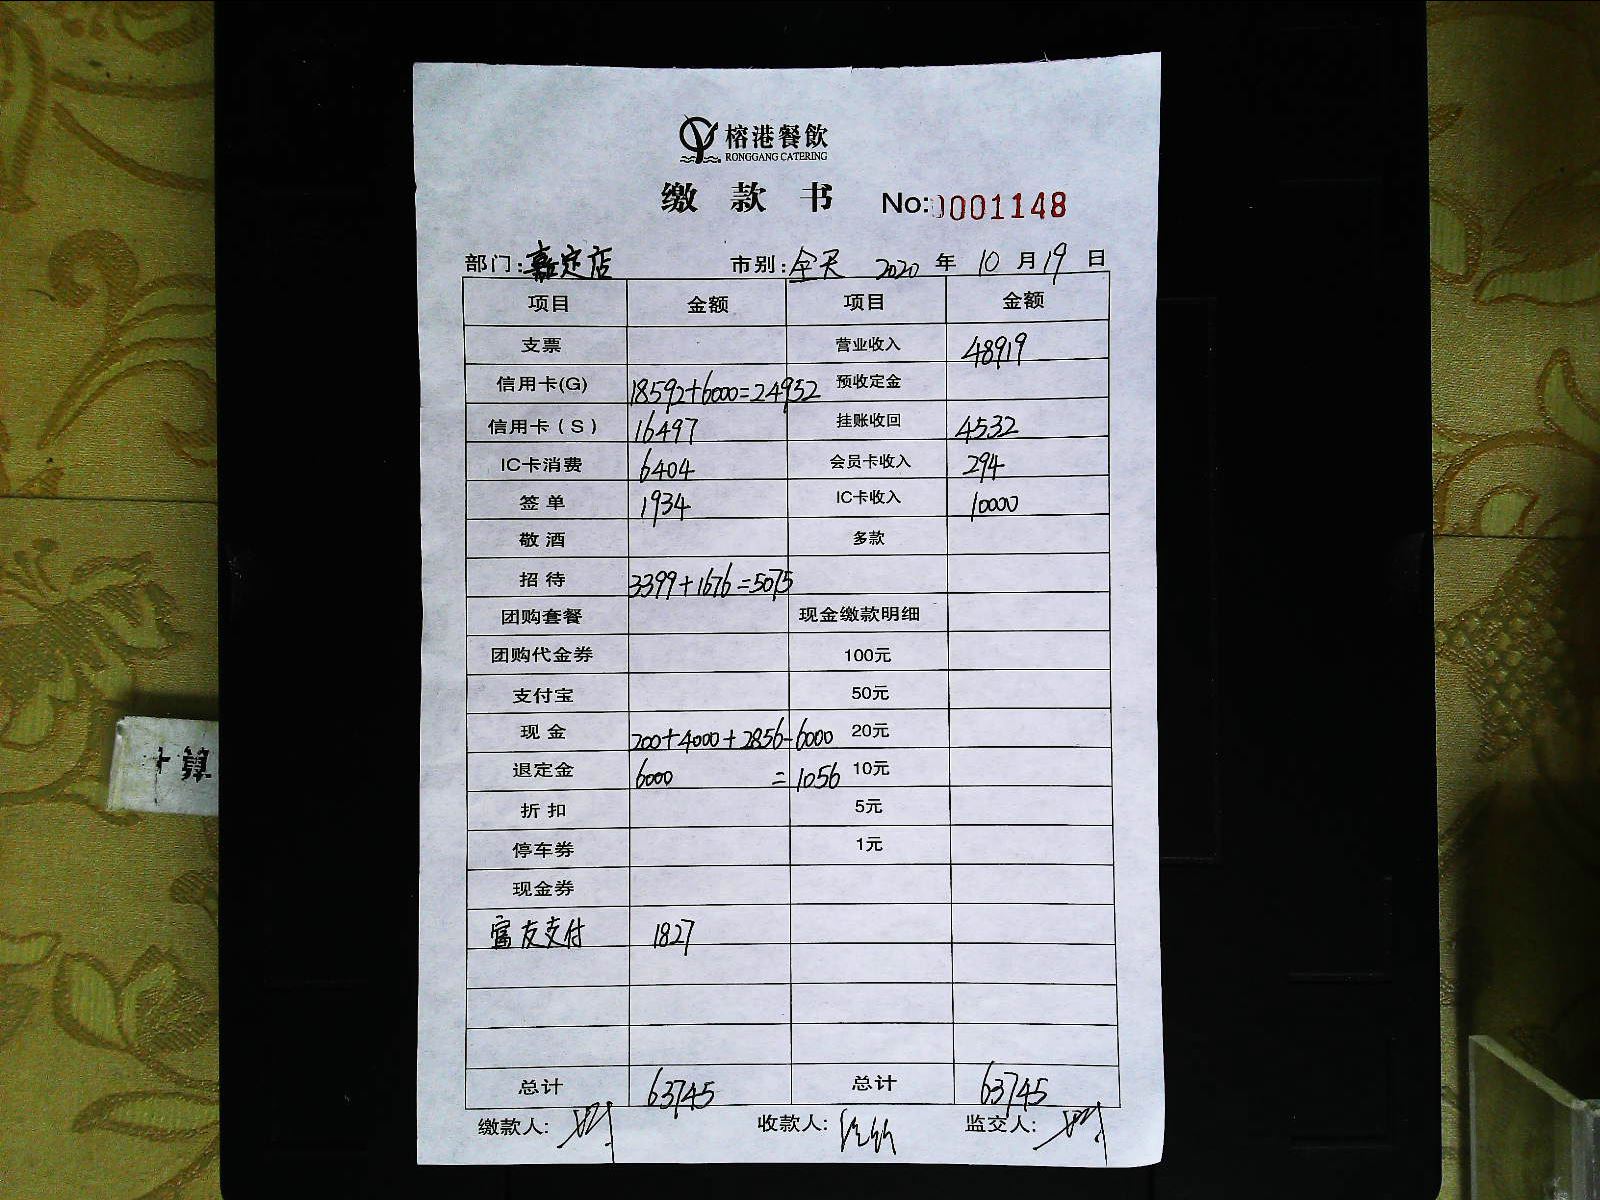 榕港餐飲
RONGGANG CATERING
缴款书 No:0001148
部门:嘉定店 市别:全天 2020 年 10 月 19 日
项目 金额 项目 金额
支票 营业收入 48919
信用卡(G) 18592+6000=24952 预收定金
信用卡(S) 16497 挂账收回 4532
IC卡消费 6404 会员卡收入 294
签单 1934 IC卡收入 10000
敬酒 多款
招待 3399+1676=5075
团购套餐 现金缴款明细
团购代金券 100元
支付宝 50元
现金 200+4000+2856-6000 20元
退定金 6000 =1056 10元
折扣 5元
停车券 1元
现金券
富友支付 1827
总计 63745 总计 63745
缴款人: 收款人: 监交人:
计算